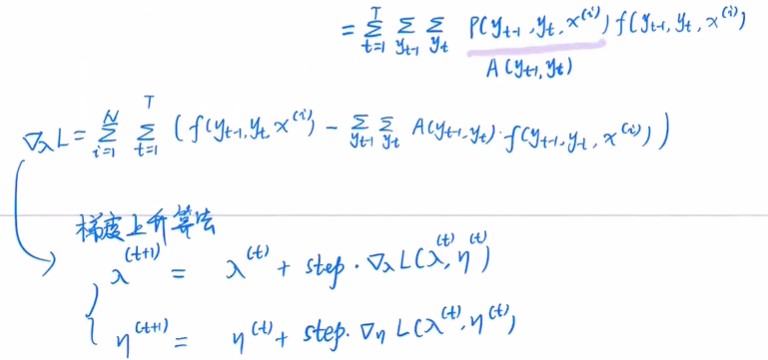 = \sum_{t=1}^{T} \sum_{y_{t-1}} \sum_{y_t} P(y_{t-1}, y_t, x^{(i)}) f(y_{t-1}, y_t, x^{(i)})
A(y_{t-1}, y_t)
\nabla_\lambda L = \sum_{i=1}^{N} \sum_{t=1}^{T} (f(y_{t-1}, y_t, x^{(i)}) - \sum_{y_{t-1}} \sum_{y_t} A(y_{t-1}, y_t) \cdot f(y_{t-1}, y_t, x^{(i)}))
梯度上升算法
\lambda^{(t+1)} = \lambda^{(t)} + step \cdot \nabla_\lambda L(\lambda^{(t)}, \eta^{(t)})
\eta^{(t+1)} = \eta^{(t)} + step \cdot \nabla_\eta L(\lambda^{(t)}, \eta^{(t)})